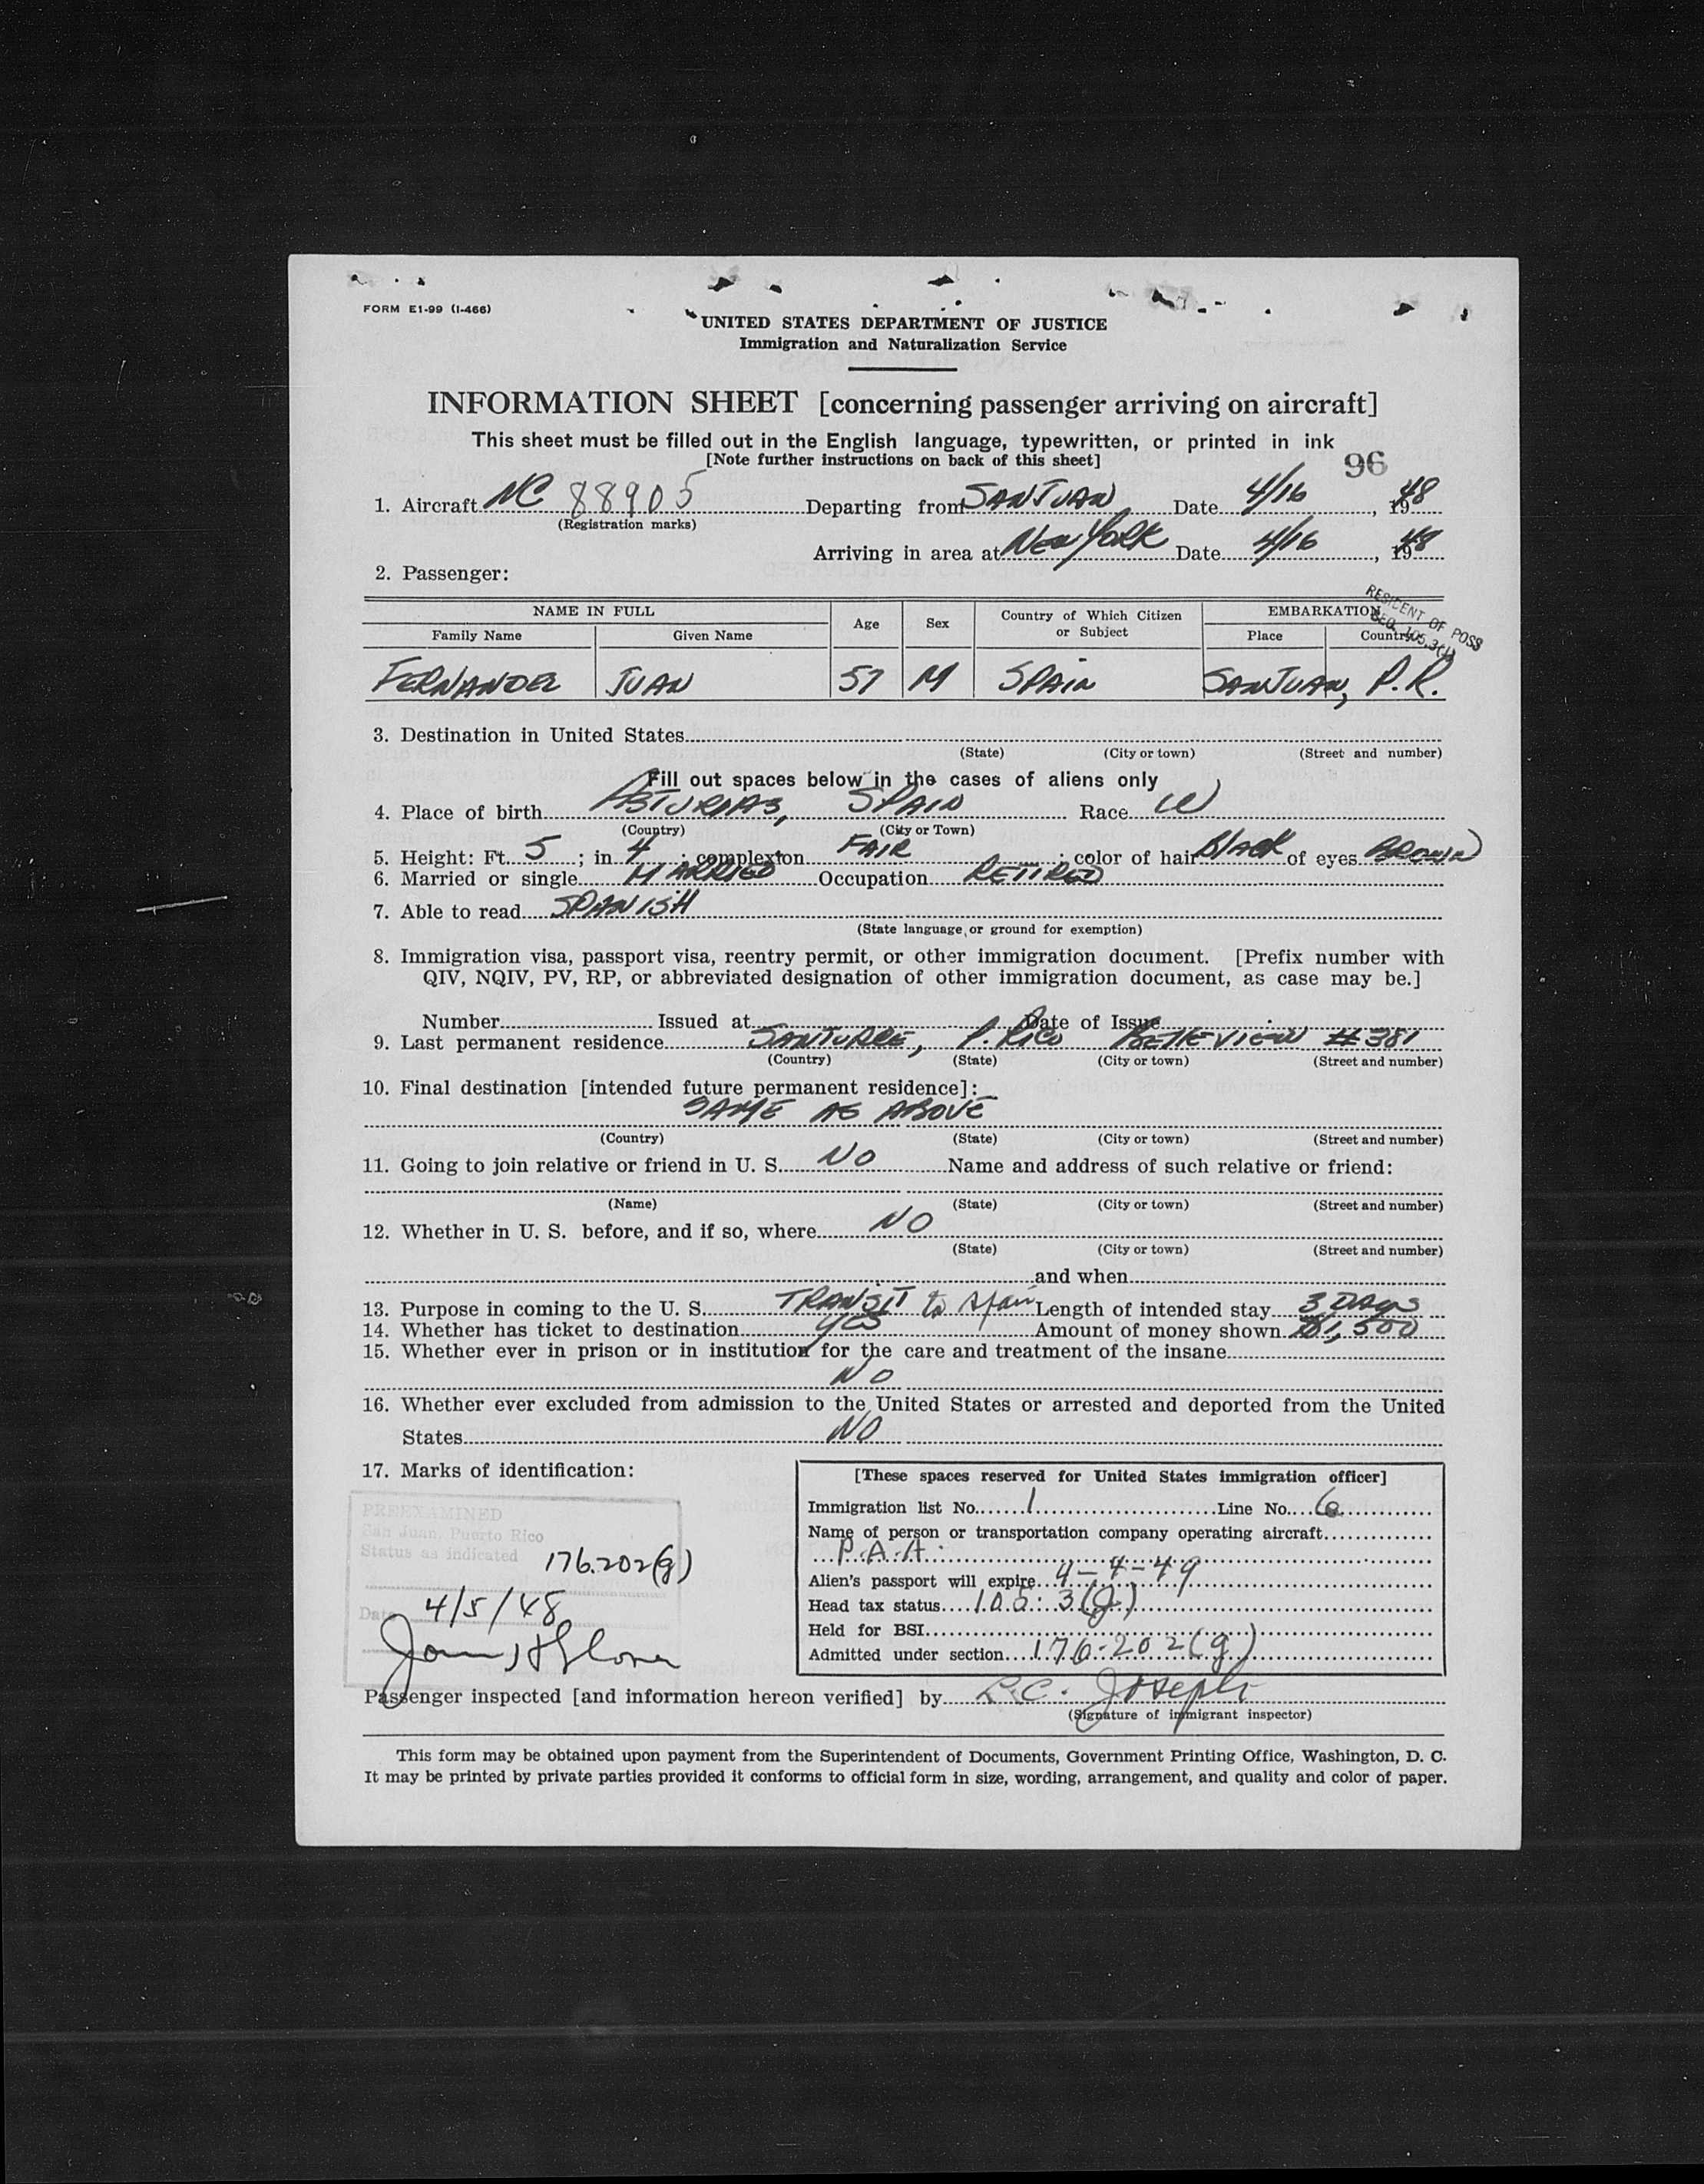 FORM E1-99 (I-466)
UNITED STATES DEPARTMENT OF JUSTICE
Immigration and Naturalization Service
INFORMATION SHEET [concerning passenger arriving on aircraft]
This sheet must be filled out in the English language, typewritten, or printed in ink
[Note further instructions on back of this sheet]
96
1. Aircraft NC 88905 Departing from SAN JUAN Date 4/16, 1948
(Registration marks)
Arriving in area at New York Date 4/16, 1948
2. Passenger:
NAME IN FULL Age Sex Country of Which Citizen or Subject EMBARKATION
Family Name Given Name Place Country
RESIDENT OF POSS
SEC. 105.3(J)
FERNANDEZ JUAN 57 M SPAIN SAN JUAN, P.R.
3. Destination in United States
(State) (City or town) (Street and number)
Fill out spaces below in the cases of aliens only
4. Place of birth ASTURIAS, SPAIN Race W
(Country) (City or Town)
5. Height: Ft. 5; in 4; complexion FAIR; color of hair Black of eyes BROWN
6. Married or single MARRIED Occupation RETIRED
7. Able to read SPANISH
(State language, or ground for exemption)
8. Immigration visa, passport visa, reentry permit, or other immigration document. [Prefix number with
QIV, NQIV, PV, RP, or abbreviated designation of other immigration document, as case may be.]
Number Issued at Date of Issue
9. Last permanent residence SANTURCE, P. RICO #381
(Country) (State) (City or town) (Street and number)
10. Final destination [intended future permanent residece]:
SAME AS ABOVE
(Country) (State) (City or town) (Street and number)
11. Going to join relative or friend in U. S. NO Name and address of such relative or friend:
(Name) (State) (City or town) (Street and number)
12. Whether in U. S. before, and if so, where NO
(State) (City or town) (Street and number)
and when
13. Purpose in coming to the U. S. TRANSIT to Spain Length of intended stay 3 DAYS
14. Whether has ticket to destination YES Amount of money shown $1,500
15. Whether ever in prison or in institution for the care and treatment of the insane
NO
16. Whether ever excluded from admission to the United States or arrested and deported from the United
States NO
17. Marks of identification:
PREEXAMINED
San Juan, Puerto Rico
Status as indicated 176.202(g)
Date 4/5/48
[These spaces reserved for United States immigration officer]
Immigration list No. 1 Line No. 6
Name of person or transportation company operating aircraft
P.A.A.
Alien's passport will expire 4-4-49
Head tax status 105.3(J)
Held for BSI
Admitted under section 176.202(g)
Passenger inspected [and information hereon verified] by Joseph
(Signature of immigrant inspector)
This form may be obtained upon payment from the Superintendent of Documents, Government Printing Office, Washington, D. C.
It may be printed by private parties provided it conforms to official form in size, wording, arrangement, and quality and color of paper.